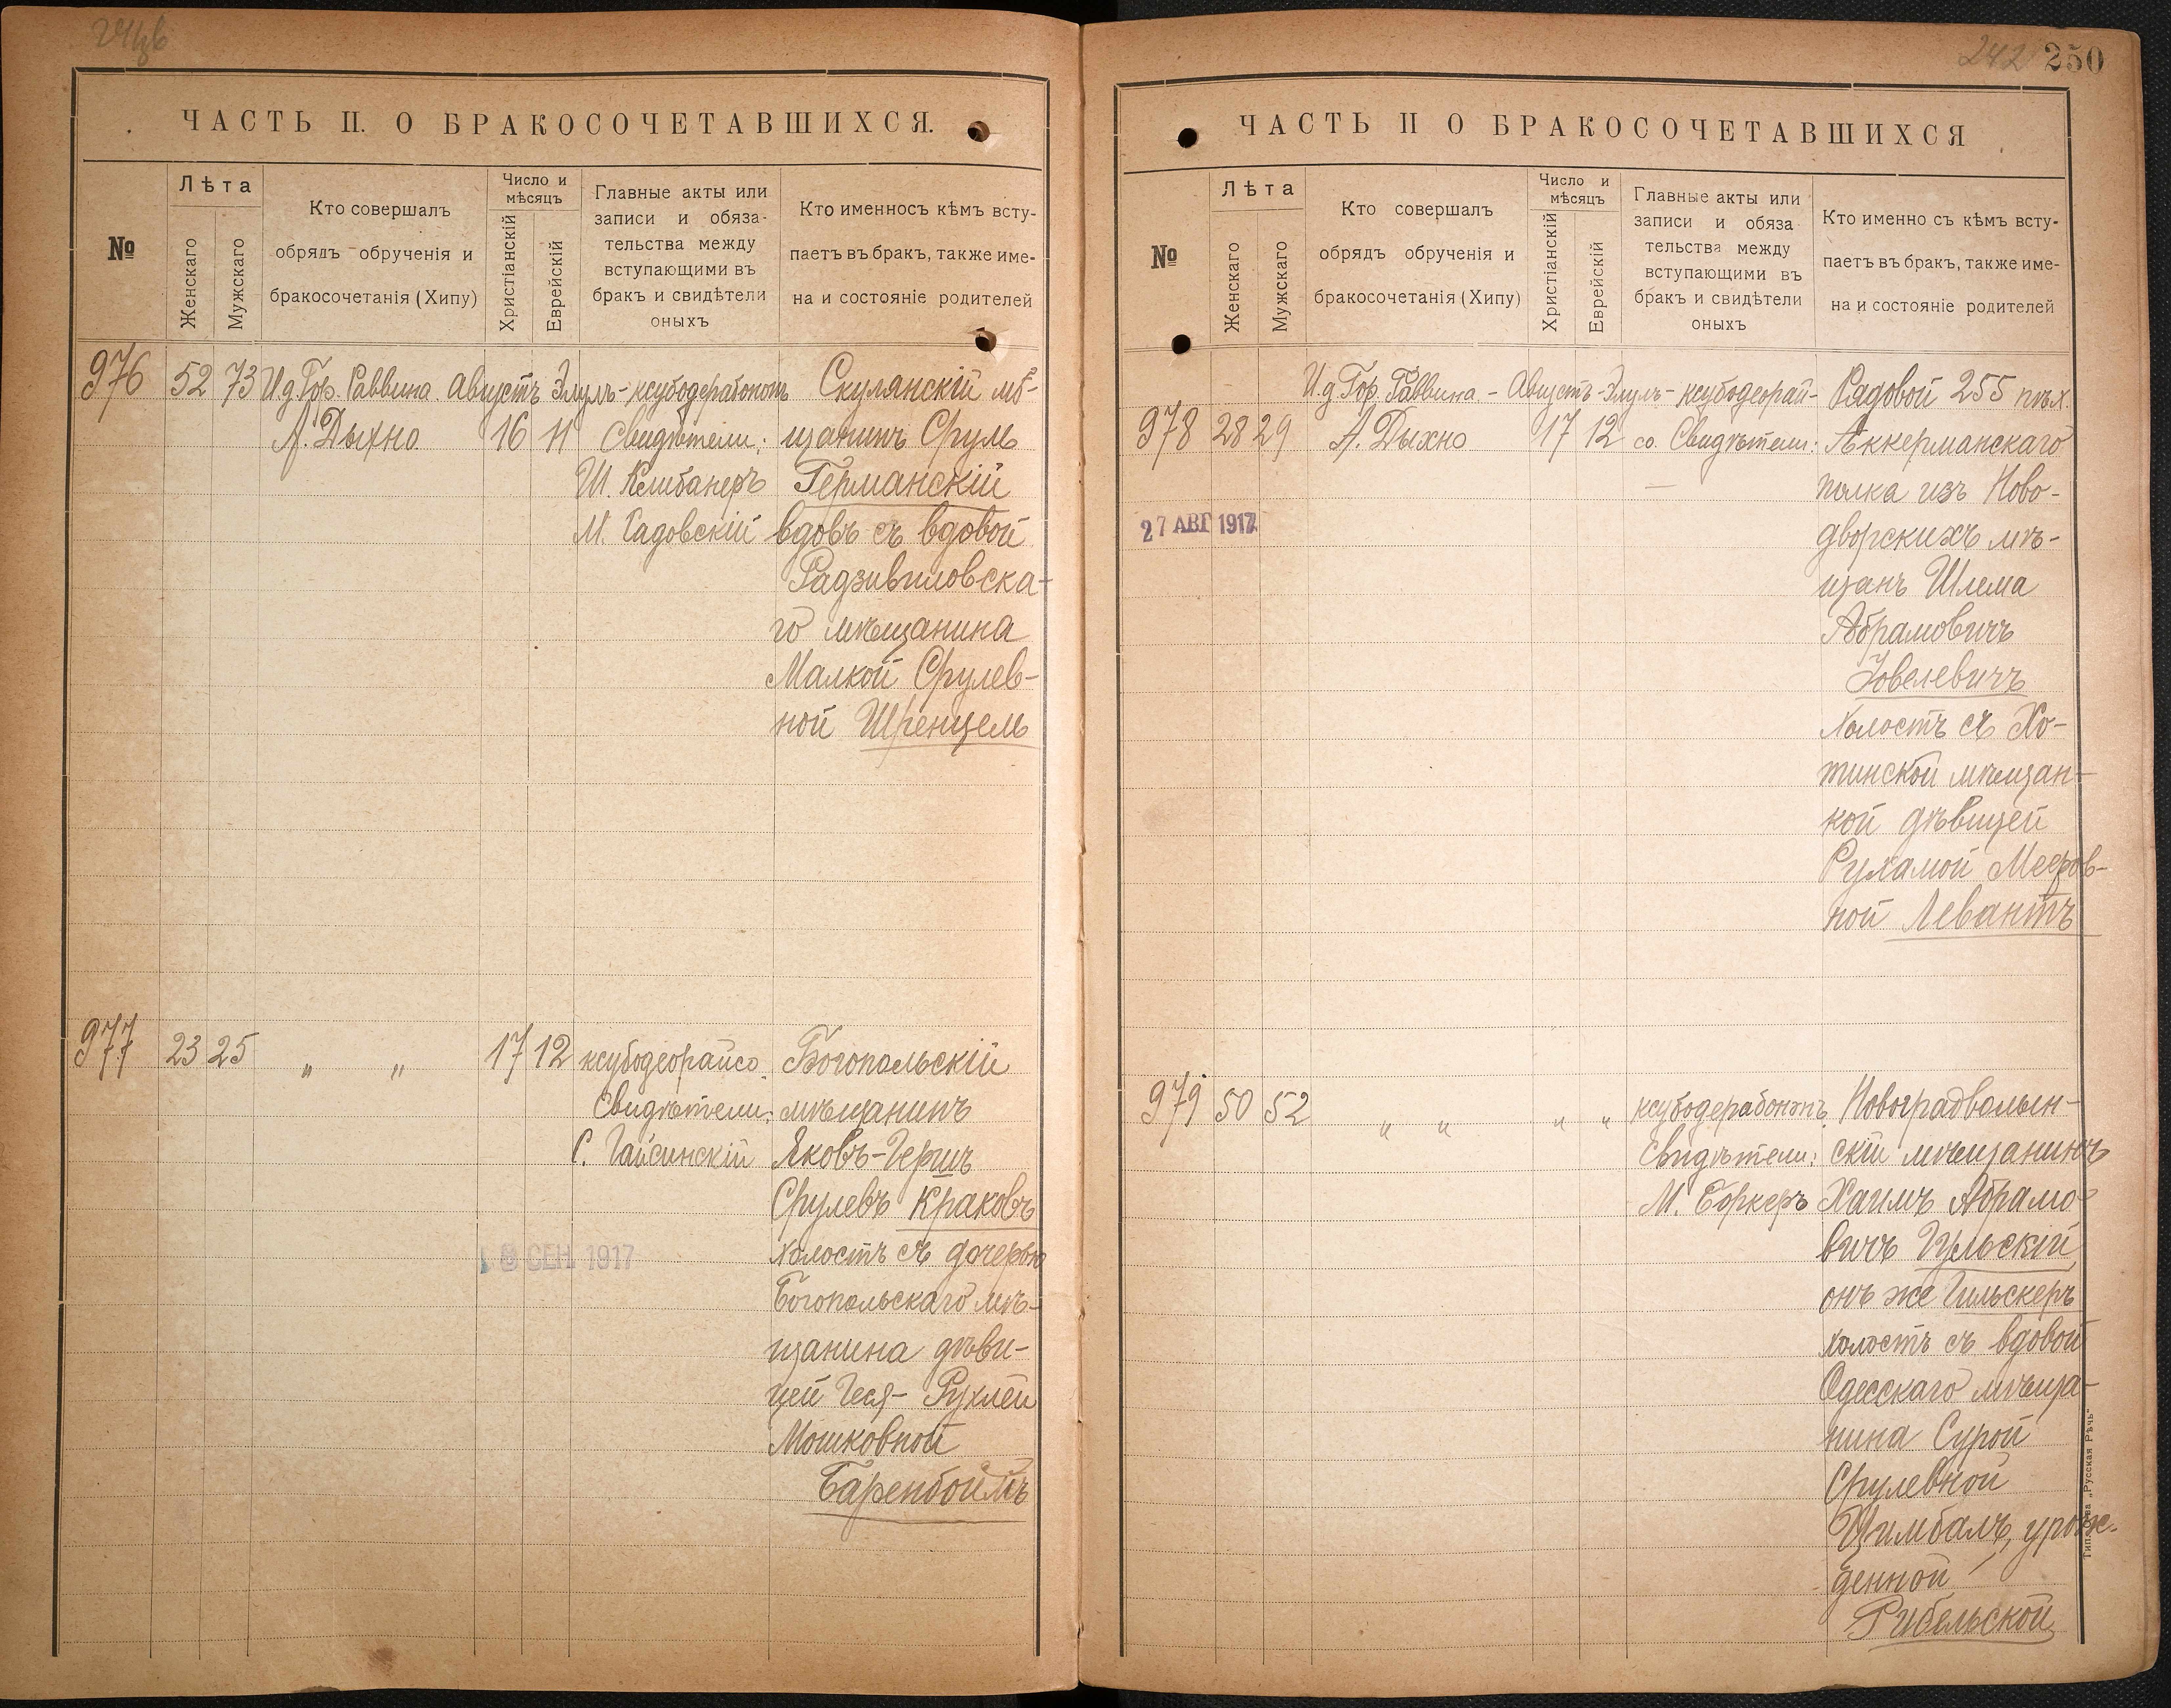 ЧАСТЬ II. О БРАКОСОЧЕТАВШИХСЯ.
№
Лѣта
Женскаго
Мужскаго
Кто совершалъ
обрядъ обрученія и
бракосочетанія (Хипу)
Число и
мѣсяцъ
Христіанскій
Еврейскій
Главные акты или
записи и обяза-
тельства между
вступающими въ
бракъ и свидѣтели
оныхъ
Кто именносъ кѣмъ всту-
паетъ въ бракъ, также име-
на и состояніе родителей
976 52 73 И.д. Гор. Раввина
А. Дыхно
Августъ Элулъ
16 11
ксубодерабононъ
Свидѣтели:
Ш. Клибанеръ
М. Садовскій
Скулянскій мѣ-
щанинъ Сруль
Германскій
вдовъ съ вдовой
Радзивиловска-
го мѣщанина
Малкой Срулев-
ной Шренцель
977 23 25 " " 17 12
ксубодеорайсо
Свидѣтели:
С. Гайсинскій
Богопольскій
мѣщанинъ
Яковъ-Гершъ
Срулевъ Краковъ
холостъ съ дочерью
Богопольскаго мѣ-
щанина дѣви-
цей Геся- Рухлей
Мошковной
Баренбоймъ
СЕН 1917
242 250
ЧАСТЬ II О БРАКОСОЧЕТАВШИХСЯ
№
Лѣта
Женскаго
Мужскаго
Кто совершалъ
обрядъ обрученія и
бракосочетанія (Хипу)
Число и
мѣсяцъ
Христіанскій
Еврейскій
Главные акты или
записи и обяза
тельства между
вступающими въ
бракъ и свидѣтели
оныхъ
Кто именно съ кѣмъ всту-
паетъ въ бракъ, также име-
на и состояніе родителей
978 28 29 И.д. Гор. Раввина -
А. Дыхно
Августъ-Элулъ-
17 12
ксубодеорай-
со. Свидѣтели:
—
27 АВГ 1917
Рядовой 255 пѣх.
Аккерманскаго
полка изъ Ново-
дворскихъ мѣ-
щанъ Шлема
Абрамовичъ
Іовелевичъ
холостъ съ Хо-
тинской мѣщан-
кой дѣвицей
Рухамой Мееров-
ной Левантъ
979 50 52 " " " "
ксубодерабононъ
Свидѣтели:
М. Боркеръ
Новоградволын-
скій мѣщанинъ
Хаимъ Абрамо-
вичъ Гульскій,
онъ же Гильскеръ
холостъ съ вдовой
Одесскаго мѣща-
нина Сурой
Срулевной
Цимбалъ, урож-
денной
Рибельской
Тип. Т-ва „Русская Рѣчь"